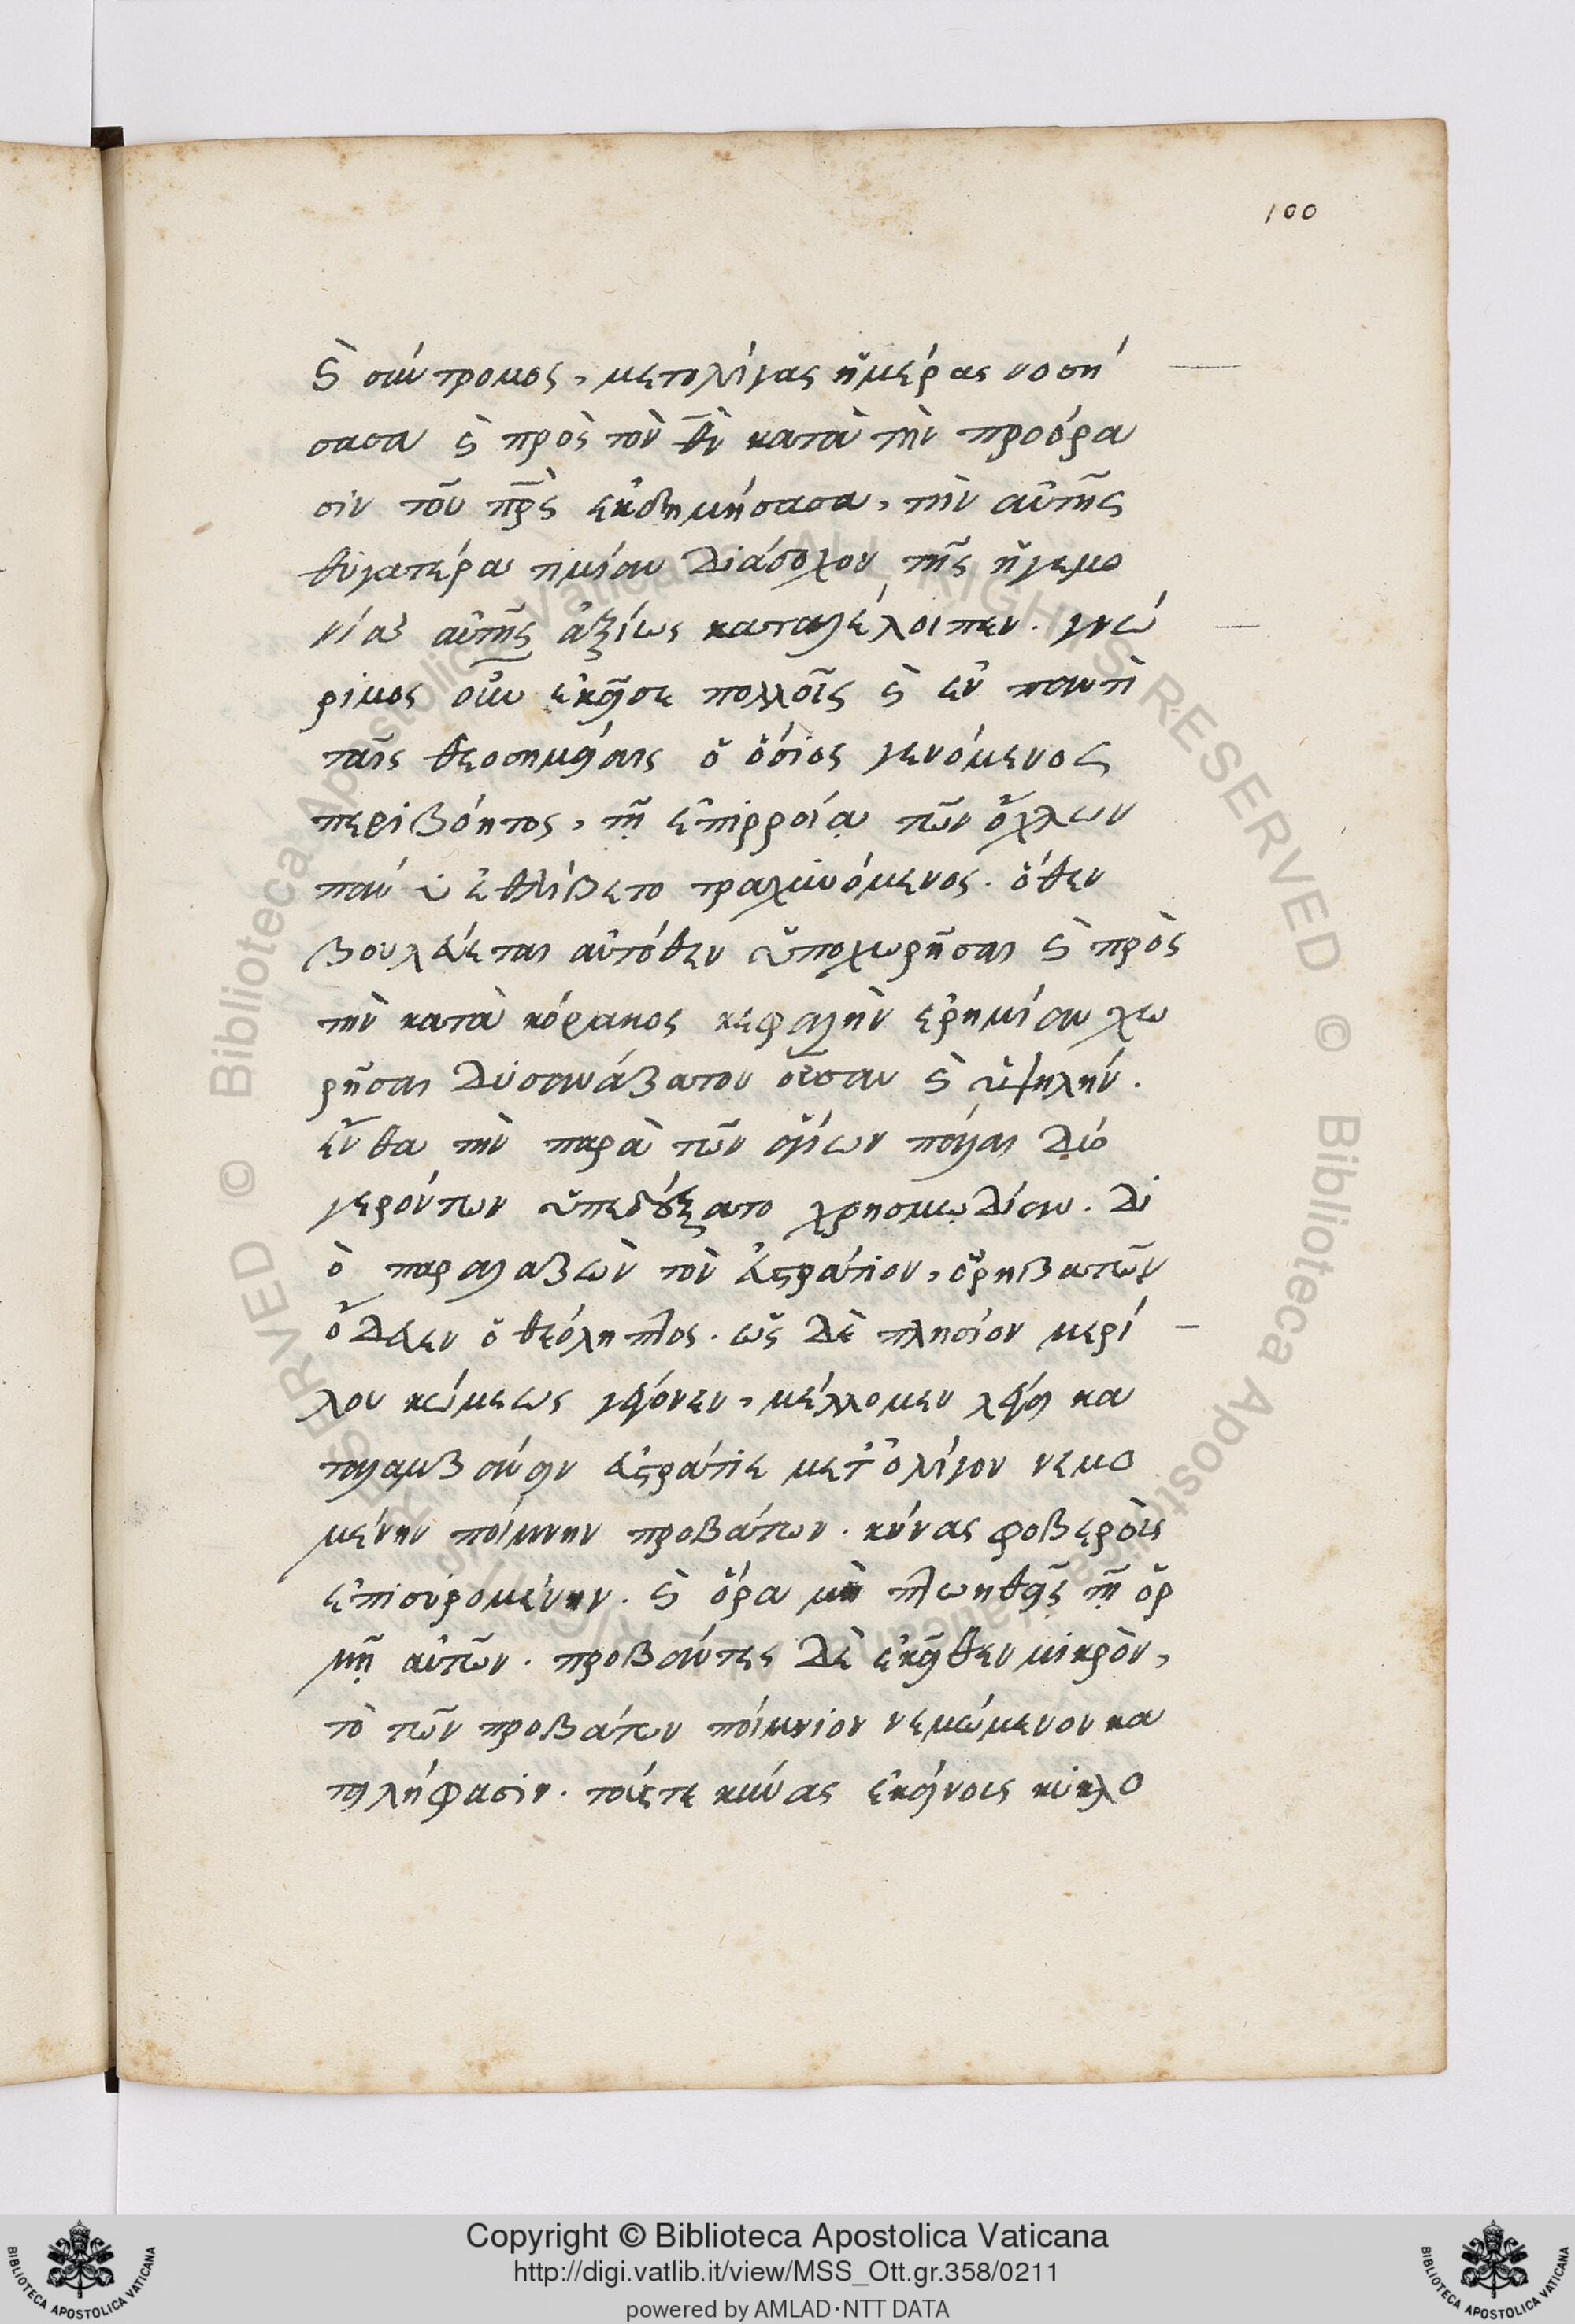 100
ϗ σύντρομος, μετολίγας ἡμέρας νοσή
σασα ϗ πρὸς τὸν θν κατὰ τὴν προόρα
σιν τοῦ πρς ἐκδημήσασα, τὴν αὐτῆς
θυγατέρα τιμίαν διάδοχον τῆς ἡγεμο
νίας αὐτῆς ἀξίως καταλέλοιπεν. γνώ
ριμος οὖν ἐκεῖσε πολλοῖς ϗ ἐν παντὶ
ταῖς θεοσημείαις ὁ ὅσιος γενόμενος
περιβόητος, τῇ ἐπιρροίᾳ τῶν ὄχλων
πάνυ ἐθλίβετο τραχυνόμενος. ὅθεν
βουλεύεται αὐτόθεν ὑποχωρῆσαι ϗ πρὸς
τὴν κατὰ κόρακος κεφαλὴν ἐρημίαν χω
ρῆσαι δυσανάβατον οὖσαν ϗ ὑψηλήν.
ἔνθα τὴν παρὰ τῶν ἁγίων πάλαι δύο
γερόντων ὑπεδέξατο χρησμῳδίαν. δι
ὸ παραλαβὼν τὸν εὐστράτιον, ὀρηβατῶν
ὥδευεν ὁ θεόληπτος. ὡς δὲ πλησίον μερί
λου κώμεως γέγονεν, μέλλομεν λέγει κα
ταλαμβάνειν εὐστράτιε μετ' ὀλίγον νεμο
μένην ποίμνην προβάτων. κύνας φοβεροὺς
ἐπισυρομένην. ϗ ὅρα μὴ πτωηθῇς τῇ ὁρ
μῇ αὐτῶν. προβάντες δὲ ἐκεῖθεν μικρὸν,
τὸ τῶν προβάτων ποίμνιον νεμώμενον κα
τειλήφασιν. τούς τε κύνας ἐκείνους κύκλο
Copyright © Biblioteca Apostolica Vaticana
http://digi.vatlib.it/view/MSS_Ott.gr.358/0211
powered by AMLAD·NTT DATA